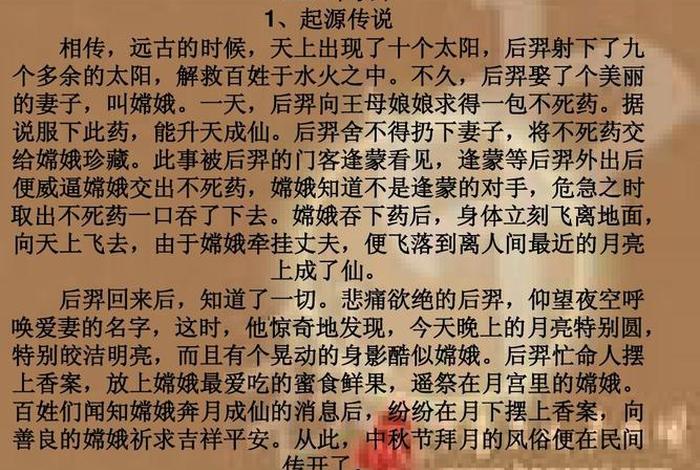 1、起源传说
相传，远古的时候，天上出现了十个太阳，后羿射下了九
个多余的太阳，解救百姓于水火之中。不久，后羿娶了个美丽
的妻子，叫嫦娥。一天，后羿向王母娘娘求得一包不死药。据
说服下此药，能升天成仙。后羿舍不得扔下妻子，将不死药交
给嫦娥珍藏。此事被后羿的门客逢蒙看见，逢蒙等后羿外出后
便威逼嫦娥交出不死药，嫦娥知道不是逢蒙的对手，危急之时
取出不死药一口吞了下去。嫦娥吞下药后，身体立刻飞离地面，
向天上飞去，由于嫦娥牵挂丈夫，便飞落到离人间最近的月亮
上成了仙。
后羿回来后，知道了一切。悲痛欲绝的后羿，仰望夜空呼
唤爱妻的名字，这时，他惊奇地发现，今天晚上的月亮特别圆，
特别皎洁明亮，而且有个晃动的身影酷似嫦娥。后羿忙命人摆
上香案，放上嫦娥最爱吃的蜜食鲜果，遥祭在月宫里的嫦娥。
百姓们闻知嫦娥奔月成仙的消息后，纷纷在月下摆上香案，向
善良的嫦娥祈求吉祥平安。从此，中秋节拜月的风俗便在民间
传开了。